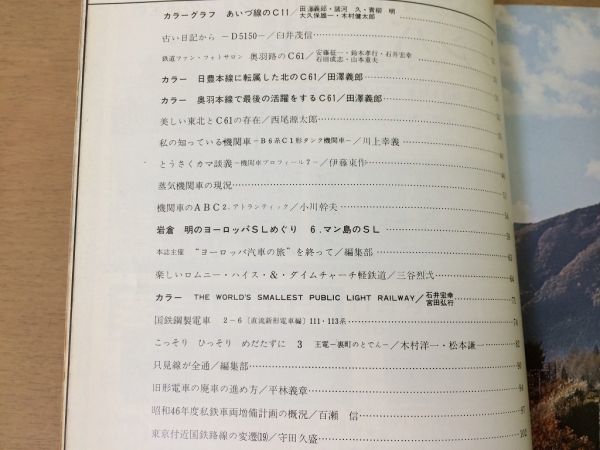 カラーグラフ あいづ線のC11／田澤義郎・諸河 久・青柳 明
大久保雄一・木村健太郎
古い日記から －D5150－／臼井茂信
鉄道ファン・フォトサロン 奥羽路のC61／安藤征一・鈴木孝行・石井宏幸
石田成志・山本重夫
カラー 日豊本線に転属した北のC61／田澤義郎
カラー 奥羽本線で最後の活躍をするC61／田澤義郎
美しい東北とC61の存在／西尾源太郎
私の知っている機関車－B6系C1形タンク機関車－／川上幸義
とうさくカマ談義－機関車プロフィール7－／伊藤東作
蒸気機関車の現況
機関車のABC 2.アトランティック／小川幹夫
岩倉 明のヨーロッパSLめぐり 6．マン島のSL
本誌主催 “ヨーロッパ汽車の旅”を終って／編集部
楽しいロムニー・ハイス・＆・ダイムチャーチ軽鉄道／三谷烈弌 64
カラー THE WORLD'S SMALLEST PUBLIC LIGHT RAILWAY／石井宏幸
宮田弘行 73
国鉄鋼製電車 2－6〔直流新形電車編〕111・113系 74
こっそり ひっそり めだたずに 3 王電－裏町のとでん－／木村洋一・松本謙一 82
只見線が全通／編集部 90
旧形電車の廃車の進め方／平林義章 94
昭和46年度私鉄車両増備計画の概況／百瀬 信 97
東京付近国鉄路線の変遷⒆／守田久盛 102